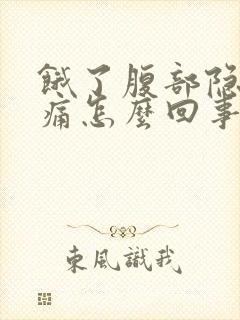 餓了腹部隐
痛怎麼回事
東風識我